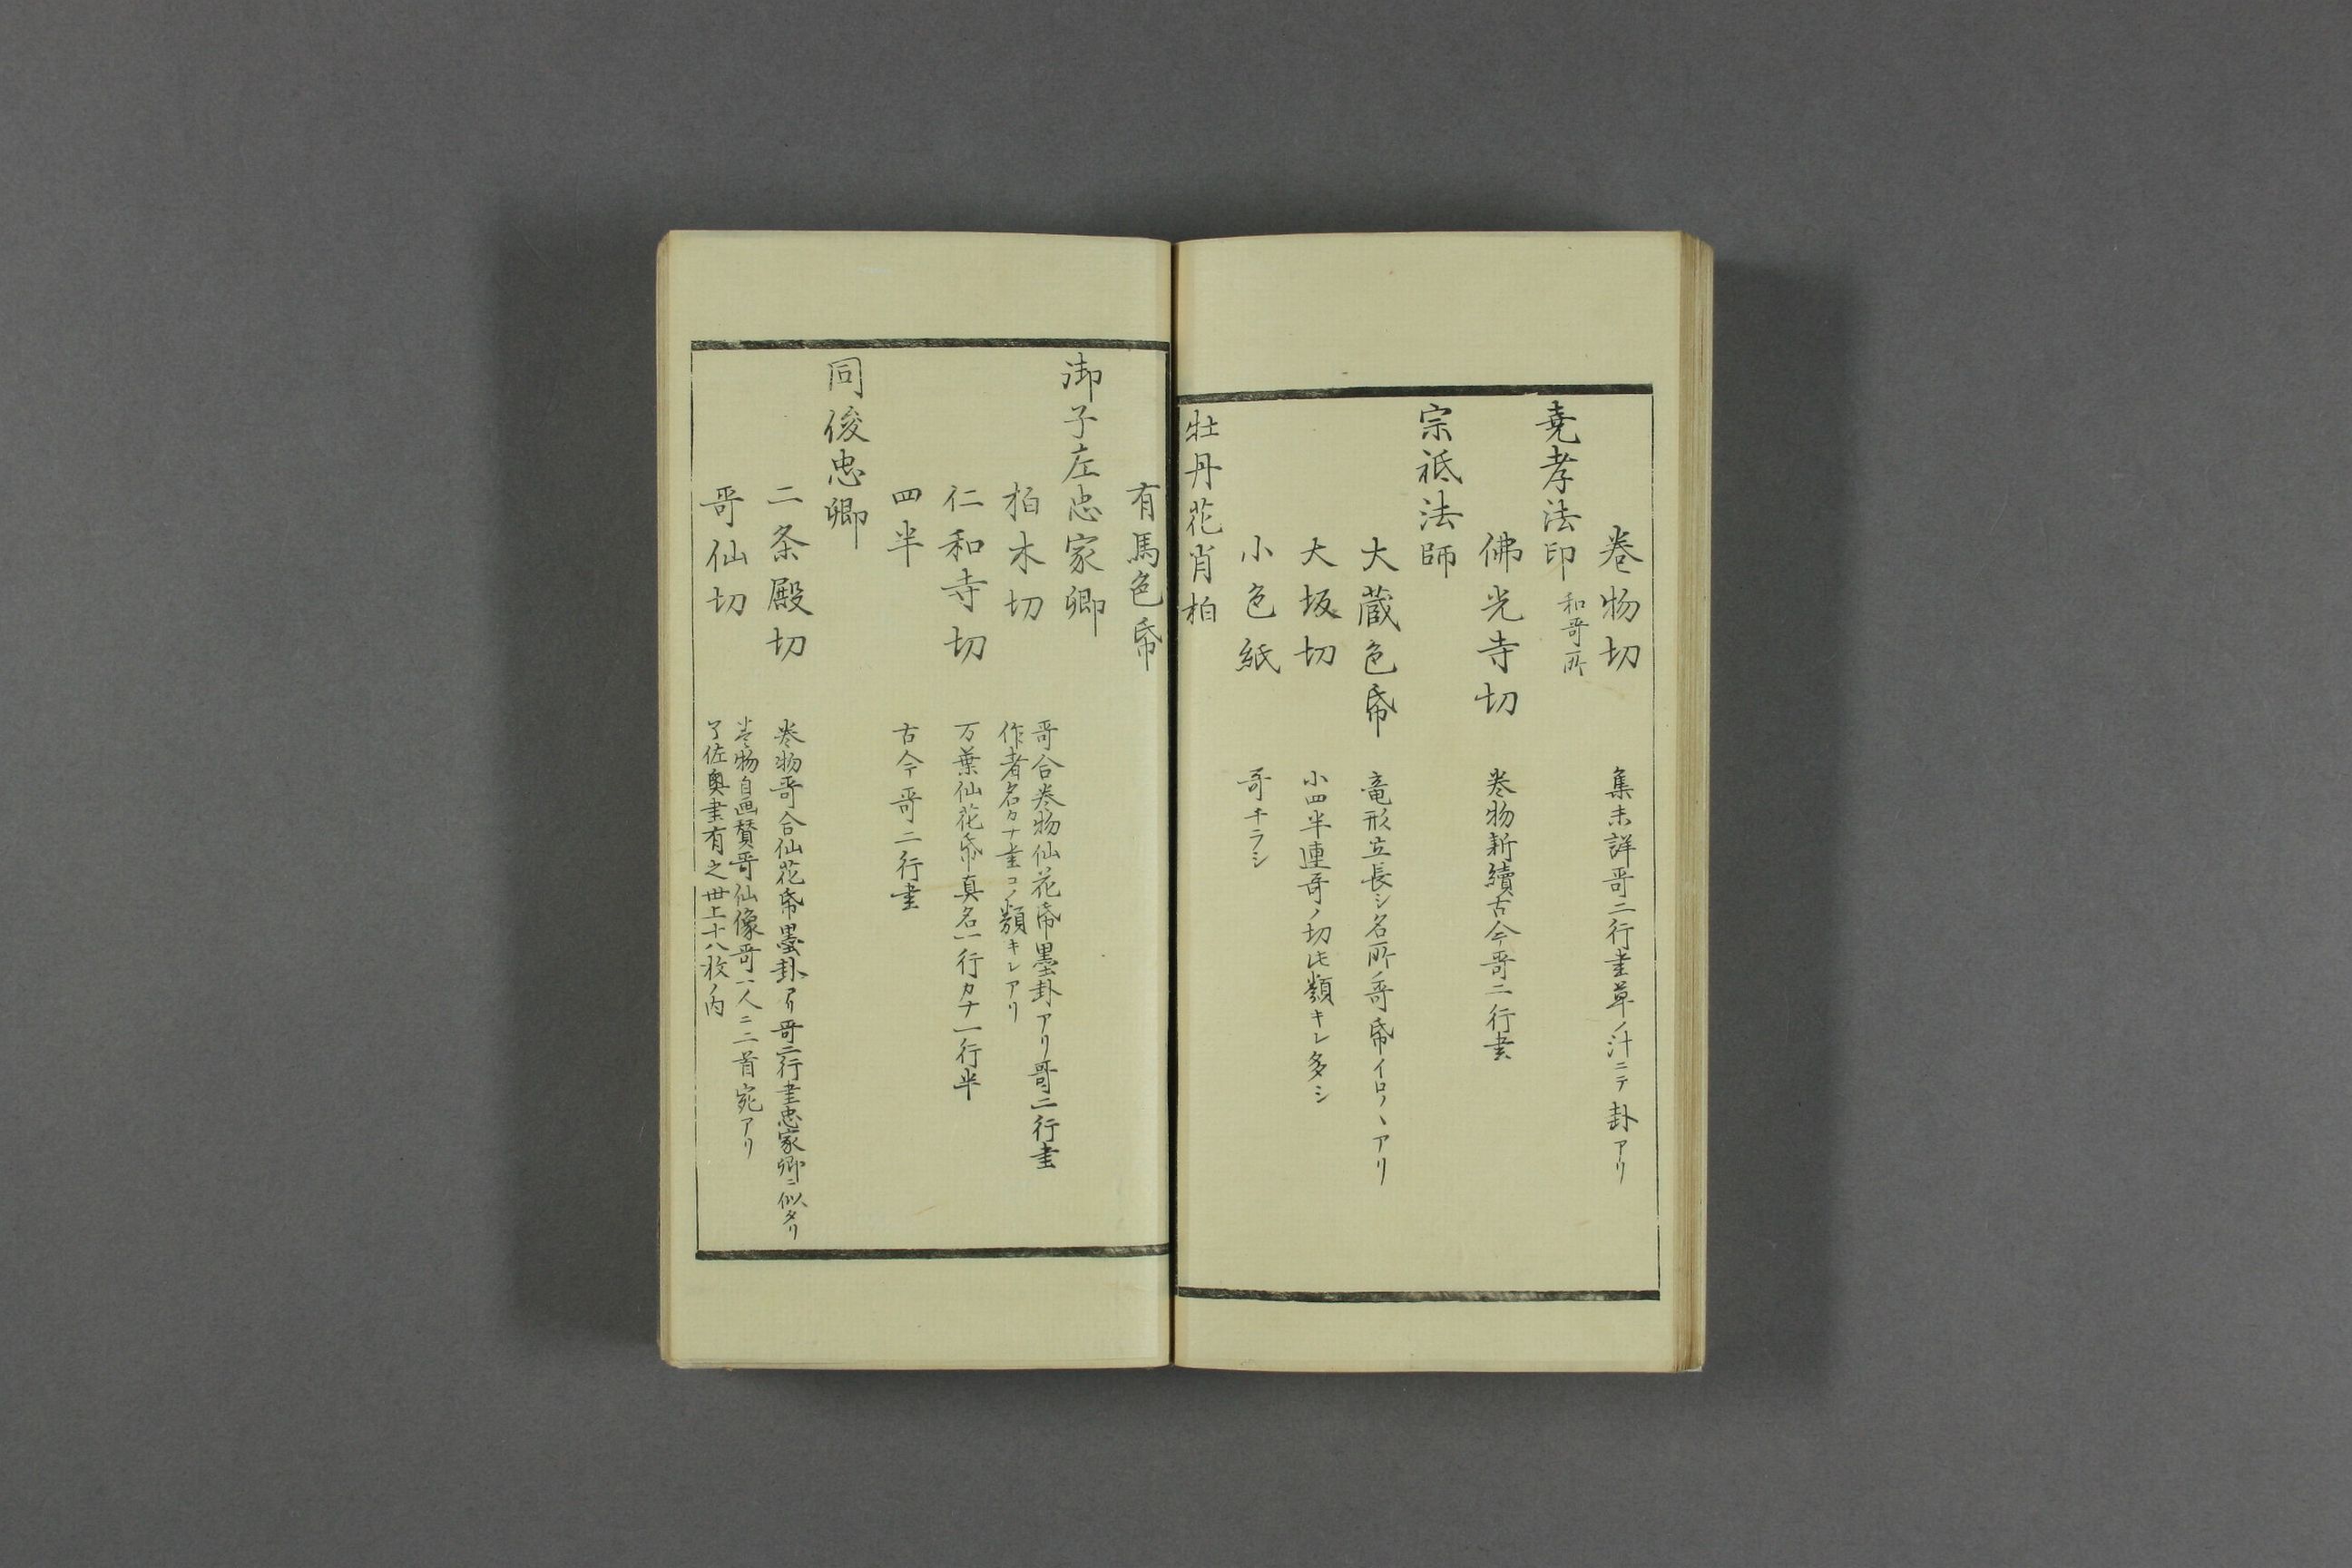 巻物切　集未詳哥二行書草ノ汁ニテ卦アリ
堯孝法印　和哥所
佛光寺切　巻物新續古今哥二行書
宗祗法師
大蔵色帋　竜形立長シ名所ノ哥帋イロ〳〵アリ
大坂切　小四半連哥ノ切此類キレ多シ
小色紙　哥チラシ
牡丹花肖柏
有馬色帋
御子左忠家卿
柏木切　哥合巻物仙花帋墨卦アリ哥二行書
作者名カナ書コノ類キレアリ
仁和寺切　万葉仙花帋真名一行カナ一行半
四半　古今哥二行書
同俊忠卿
二条殿切　巻物哥合仙花帋墨卦アリ哥二行書忠家卿ニ似タリ
哥仙切　巻物自画賛哥仙像哥一人ニ二首宛アリ
了佐奥書有之世上十八枚ノ内